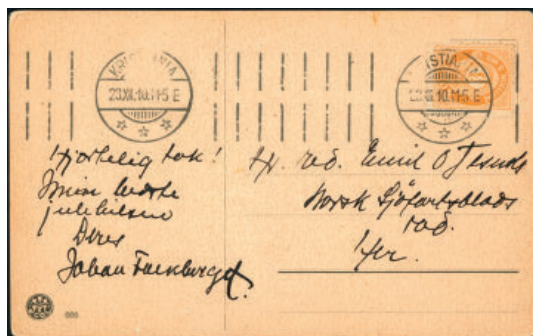 KRISTIANIA
23.XII.10.11-5 E
KRISTIANIA
23.XII.10.11-5 E
Hjertelig tak!
Min bedste
julehilsen
Deres
Johan Falkberget.
Hr. red. Emil
Norsk Sjöfartsblads
red.
Her.